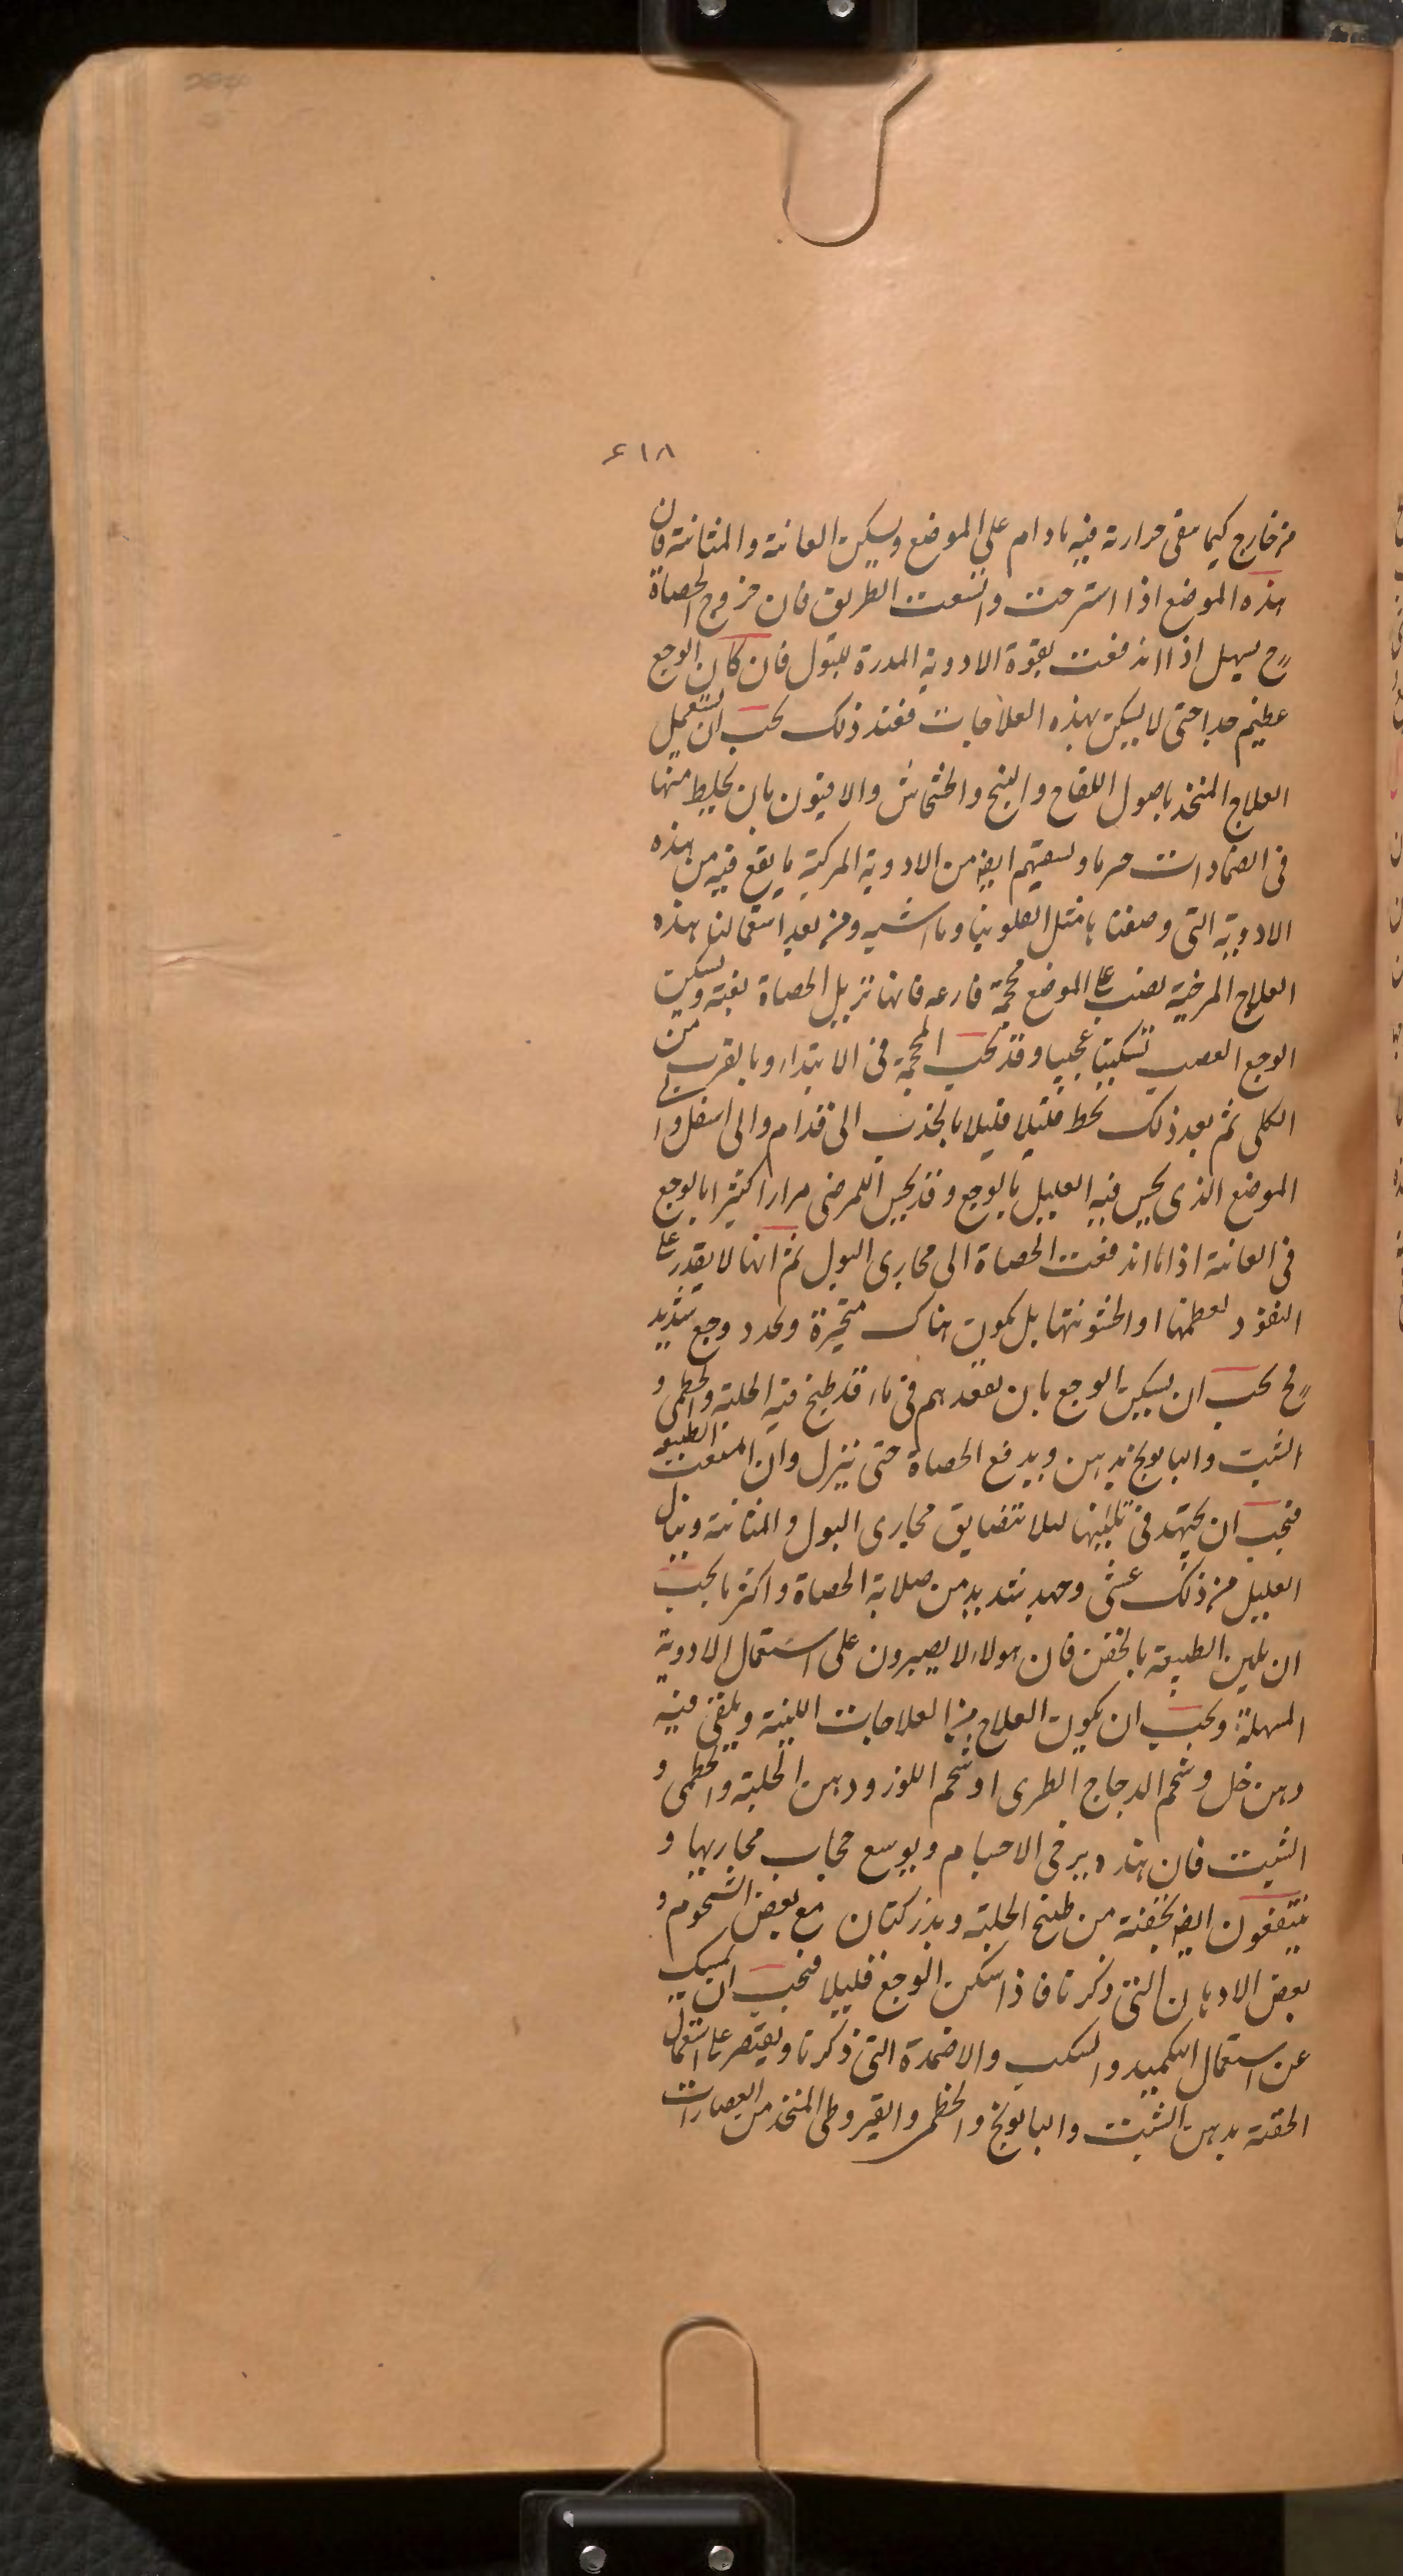 ٦١٨
من خارج كيما يبقى حرارته فيه مادام على الموضع ويسكن العانة والمثانة فان
هذه الموضع اذا استرخت واتسعت الطريق فان خروج الحصاة
ح يسهل اذا اندفعت بقوة الادوية المدرة للبول فان كان الوجع
عظيم جدا حتى لا يسكن بهذه العلاجات فعند ذلك يجب ان يستعمل
العلاج المتخذ باصول اللفاح والبنج والخشخاش والافيون بان يخلط منها
فى الضمادات ويسقيهم ايضا من الادوية المركبة ما يقع فيه من هذه
الادوية التى وصفنا مثل الفلونيا وما اشبه ومن بعد استعمالنا هذه
العلاج المرخية يصب على الموضع محجمة فارغه فانها تزيل الحصاة بغتة ويسكن
الوجع الصعب تسكينا عجيبا وقد يجب المحجمة فى الابتداء وبالقرب من
الكلى ثم بعد ذلك يحط قليلا قليلا بالجذب الى قدام والى اسفل و
الموضع الذى يحس فيه العليل بالوجع وقد يحس المرضى مرارا كثيرا بالوجع
فى العانة اذا ما اندفعت الحصاة الى مجارى البول ثم انها لا يقدر على
النفوذ لعظمها او لخشونتها بل يكون هناك متحيرة ويحدد وجع شديد
فح يجب ان يسكن الوجع بان يقعدهم فى ماء قد طبخ فيه الحلبة والخطمى و
الشبت والبابونج بدهن ويدفع الحصاة حتى ينزل وان امتنعت الطبيعة
فيجب ان يجتهد فى تليينها لئلا تتضايق مجارى البول والمثانة وينال
العليل من ذلك غشى وجهد شديد من صلابة الحصاة واكثر ما يجب
ان يلين الطبيعة بالحقن فان هولاء لا يصبرون على استعمال الادوية
المسهلة ويجب ان يكون العلاج من العلاجات اللينة ويلقى فيه
دهن خل وشحم الدجاج الطرى او شحم اللوز ودهن الحلبة والخطمى و
الشبت فان هذه يرخى الاجسام ويوسع مجاريها و
ينتفعون ايضا بحقنة من طبخ الحلبة وبذر كتان مع بعض الشحوم و
بعض الادهان التى ذكرنا فاذا سكن الوجع قليلا فيجب ان يمسك
عن استعمال التكميد والسكب والاضمدة التى ذكرنا ويقتصر على استعمال
الحقنة بدهن الشبت والبابونج والخطمى والقيروطى المتخذ من العصارات